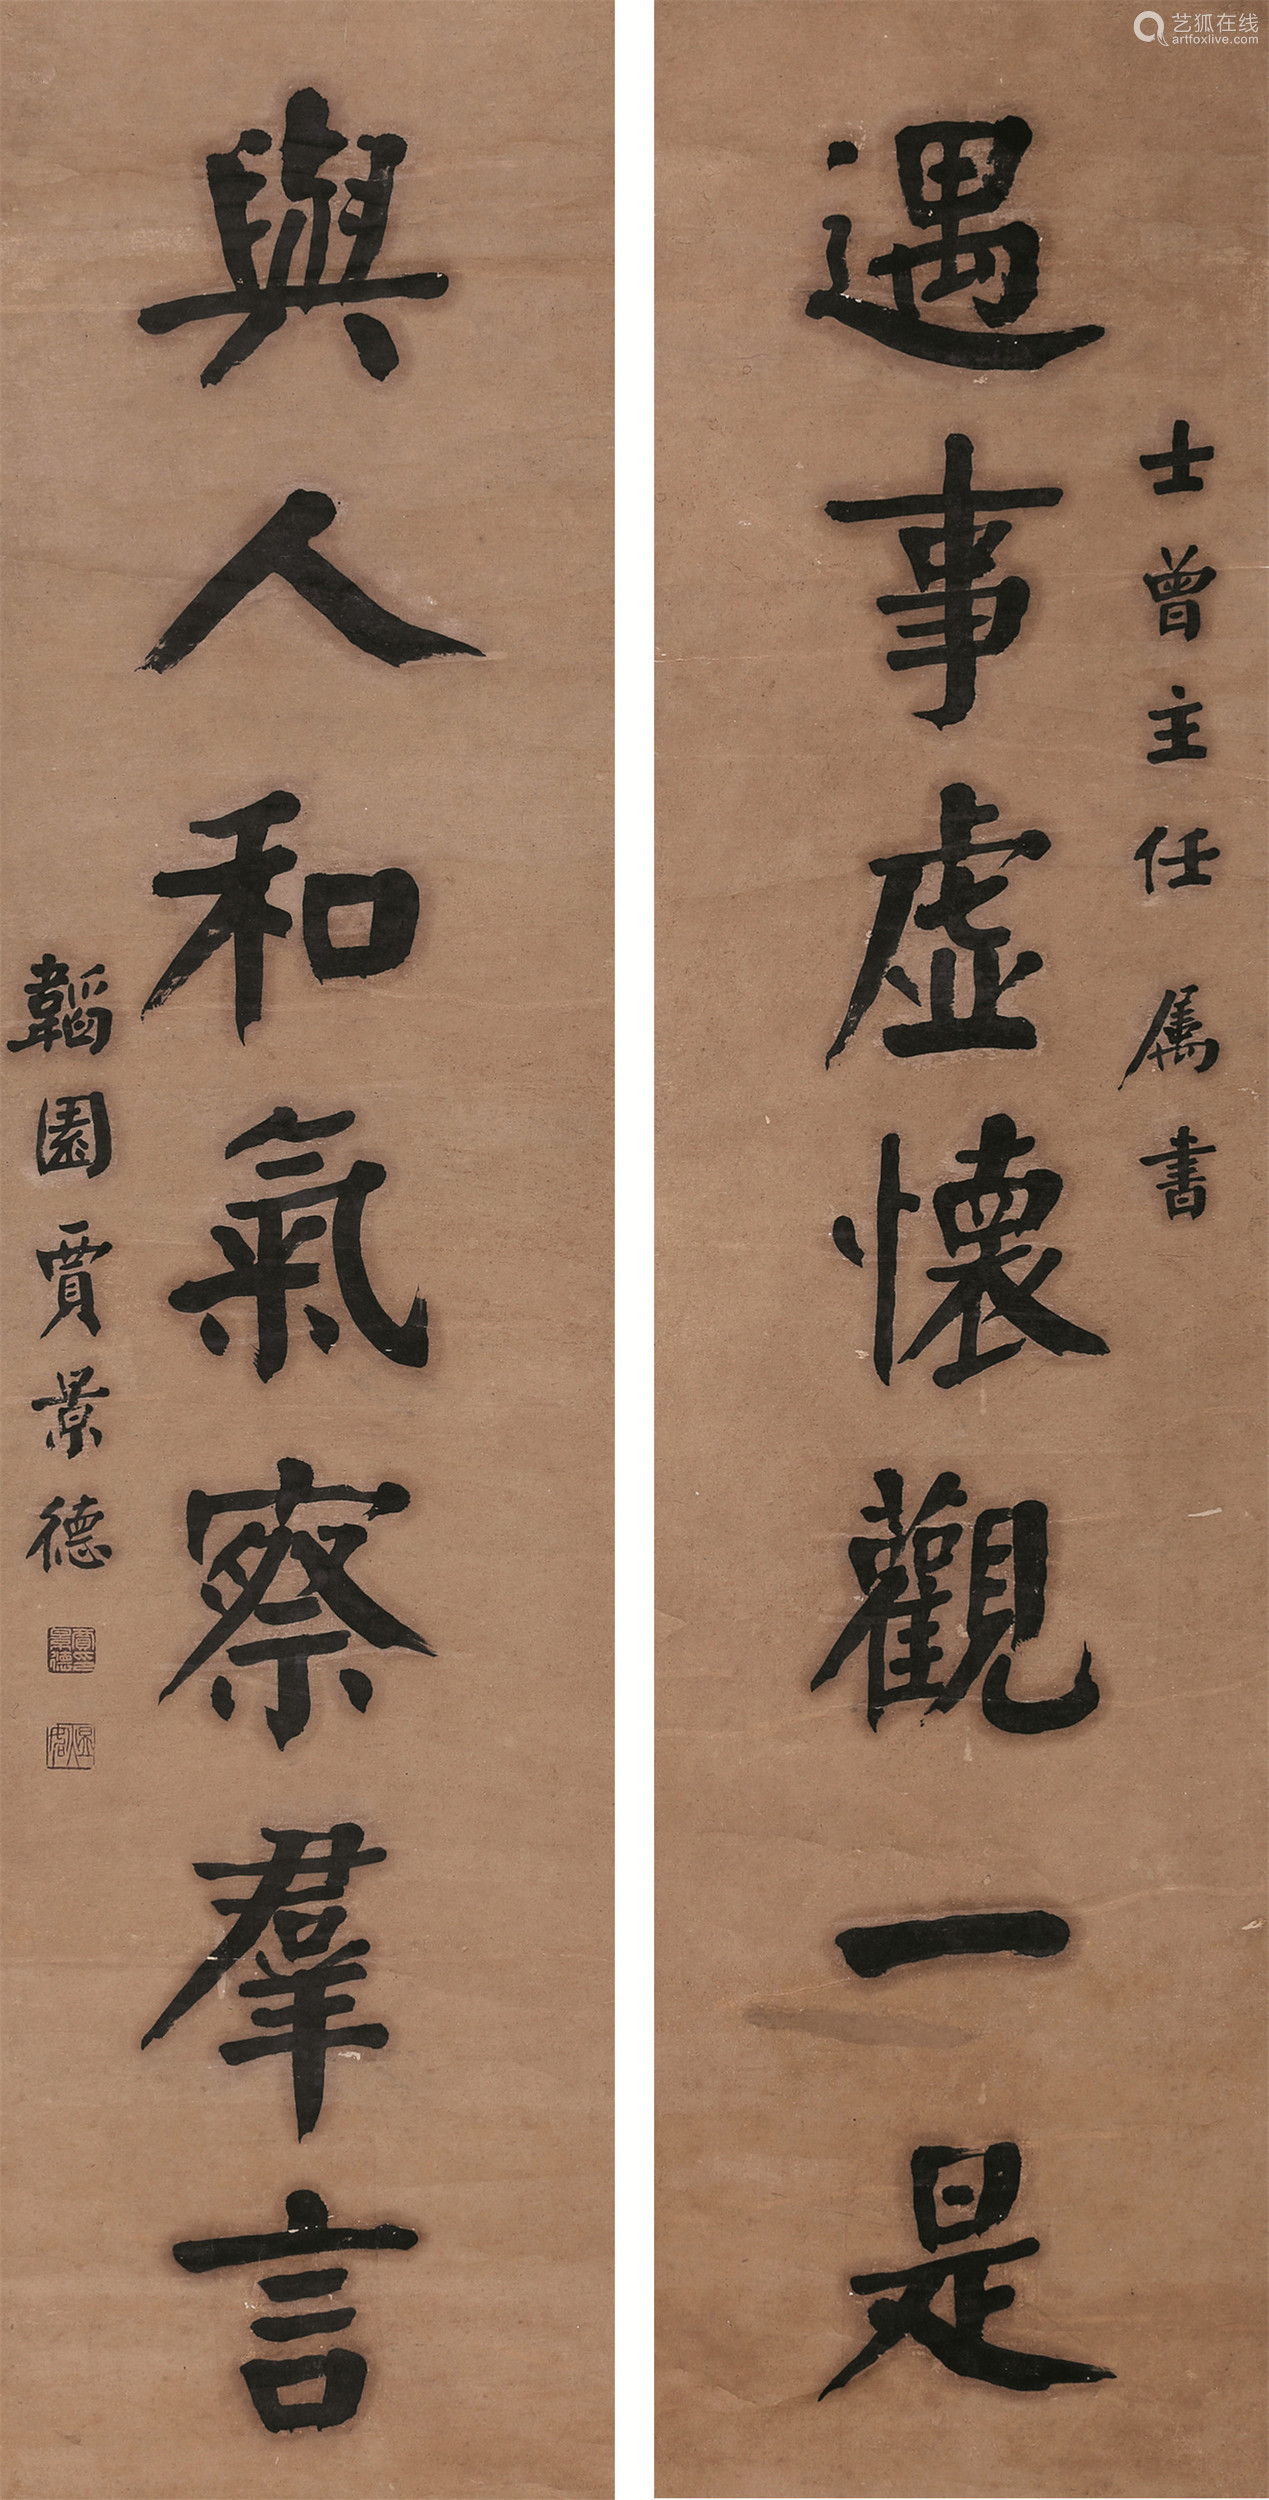 艺狐在线
artfoxlive.com
士曾主任 属書
遇事虛懷觀一是
與人和氣察羣言
韜園賈景德
賈景德印